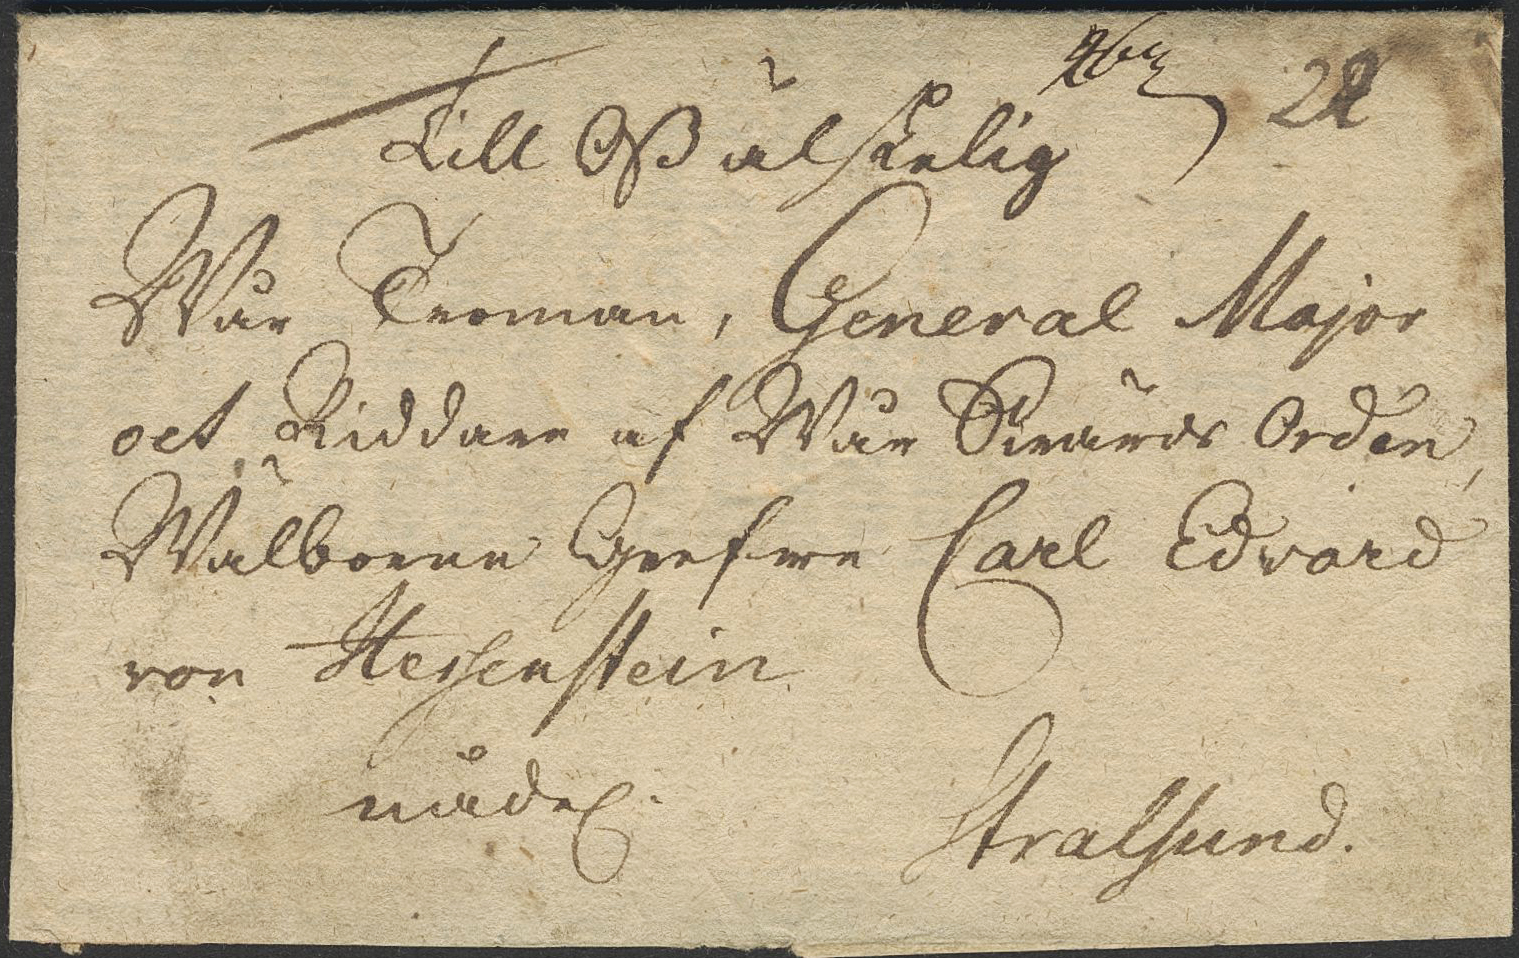 22
Till Oß älskelig
Wår Troman, General Major
och Riddare af Wår Swärds Orden,
Wälborne Grefwe Carl Edvard
von Hessenstein
nådel.
Stralsund.